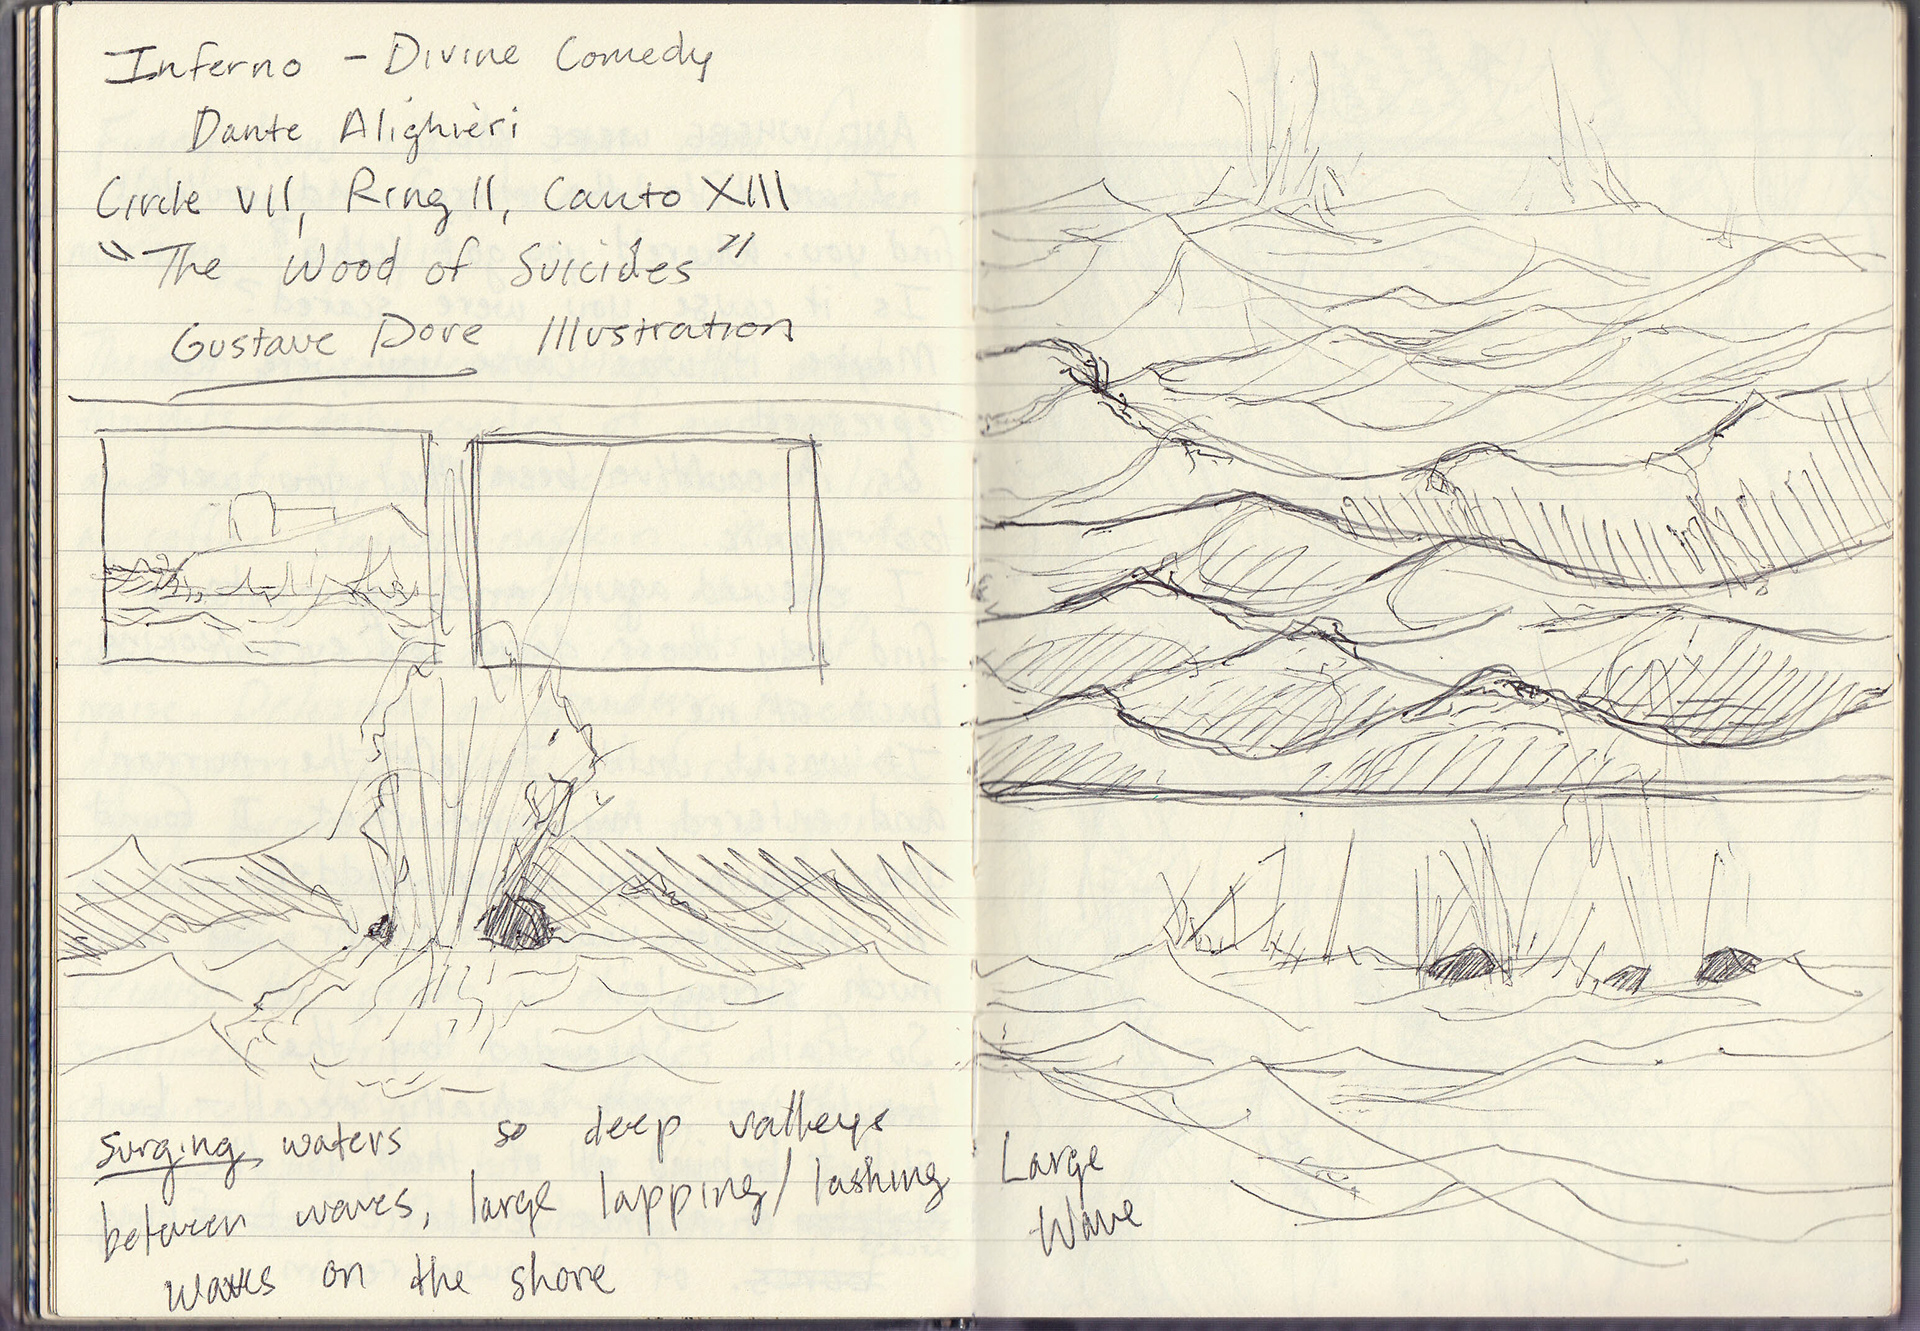 Inferno - Divine Comedy
Dante Alighieri
Circle VII, Ring II, Canto XIII
"The Wood of Suicides"
Gustave Dore Illustration
Surging waters so deep valleys
between waves, large lapping/lashing
waves on the shore
Large
Wave